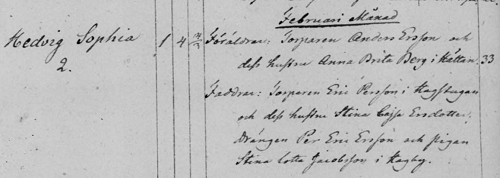 Februari Månad
Hedvig Sophia 1 4 Föräldrar: Torparen Anders Ersson och
2. dess hustru Anna Brita Berg i Kättan. 33
Faddrar: Torparen Eric Persson i Hagstugan
och dess hustru Stina Cajsa Ersdotter.
Drängen Per Eric Ersson och Pigan
Stina Lotta Jacobsson i Hagby.